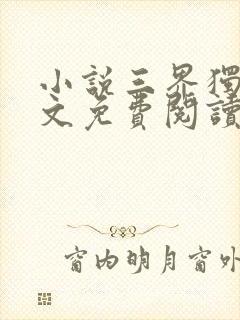 小說三界獨
文免費閱讀
窗内明月窗外